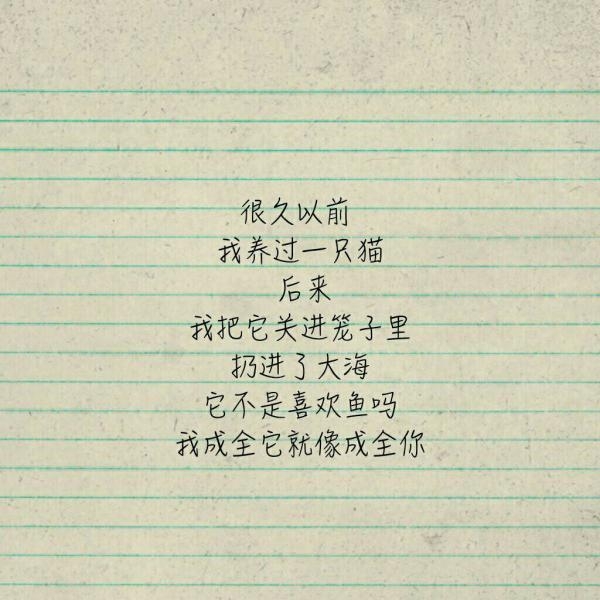 很久以前
我养过一只猫
后来
我把它关进笼子里
扔进了大海
它不是喜欢鱼吗
我成全它就像成全你